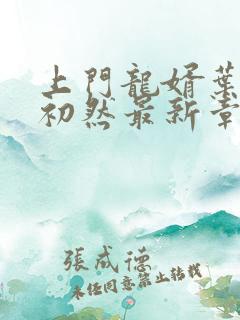 上門龍婿葉
初然最新章
張成德
未经同意禁止转载